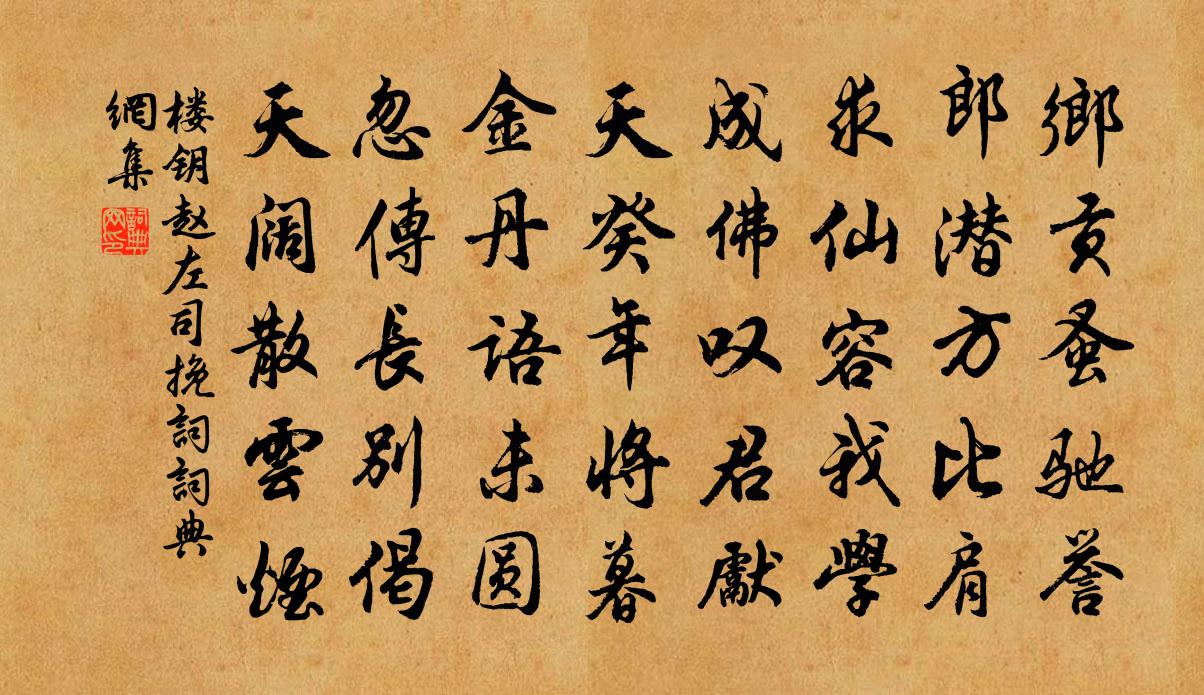 鄉贡蚤驰誉
郎潜方比肩
求仙容我學
成佛叹君獻
天癸年将暮
金丹語未圆
忽傳長别偈
天阔散雲煙
楼钥赵左司挽詞詞典
網集
詞典网印